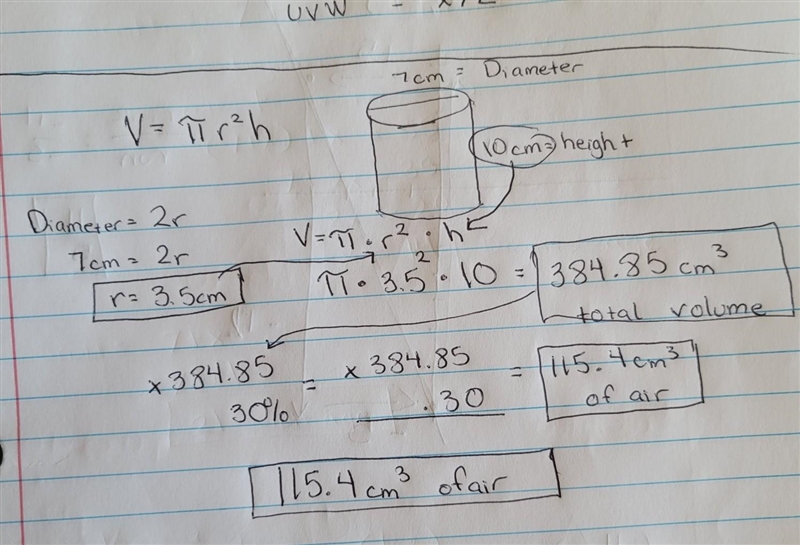 UVW
7cm = Diameter
V = πr²h
10cm = height
Diameter = 2r
7cm = 2r
r = 3.5cm
V = π · r² · h
π · 3.5² · 10 = 384.85 cm³
total volume
×384.85
30%
= ×384.85
.30
= 115.4cm³
of air
115.4cm³ of air